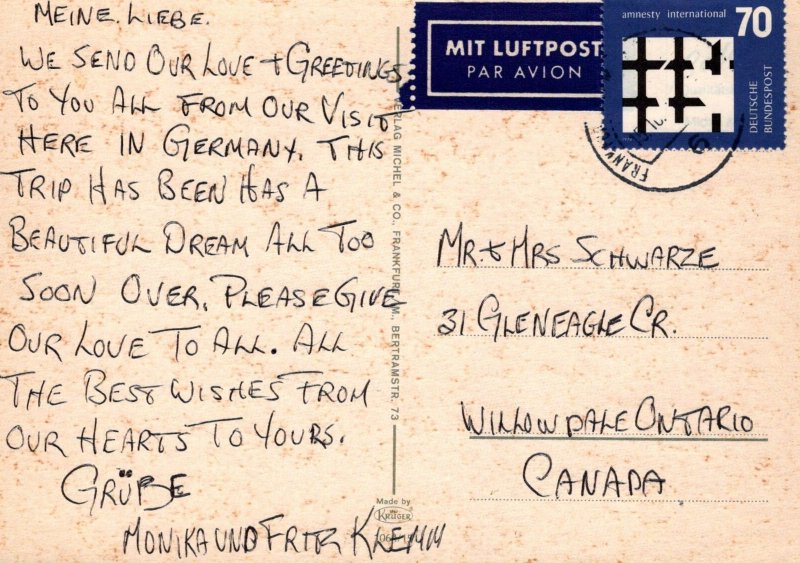 MEINE LIEBE.
WE SEND OUR LOVE + GREETINGS
TO YOU ALL FROM OUR VISIT
HERE IN GERMANY. THIS
TRIP HAS BEEN HAS A
BEAUTIFUL DREAM ALL TOO
SOON OVER. PLEASE GIVE
OUR LOVE TO ALL. ALL
THE BEST WISHES FROM
OUR HEARTS TO YOURS.
GRÜßE
MONIKA UND FRITZ KLEMM
VERLAG MICHEL & CO., FRANKFURT/M., BERTRAMSTR. 73
Made by
KRÜGER
MIT LUFTPOST
PAR AVION
amnesty international 70
DEUTSCHE
BUNDESPOST
MR. + MRS SCHWARZE
31 GLENEAGLE CR.
WILLOWDALE ONTARIO
CANADA